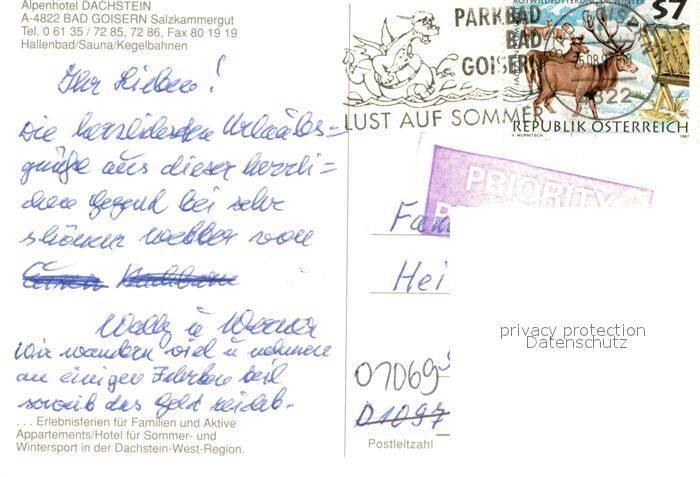 Alpenhotel DACHSTEIN
A-4822 BAD GOISERN Salzkammergut
Tel. 0 61 35 / 72 85, 72 86, Fax 80 19 19
Hallenbad/Sauna/Kegelbahnen
Ihr Lieben!
Die herzlichsten Urlaubs=
grüße aus dieser herrli=
chen Gegend bei sehr
schönem Wetter von
Wally u Werner
Wir wandern viel u nehmen
an einigen Fahrten teil
soweit das Geld reicht.
... Erlebnisferien für Familien und Aktive
Appartements/Hotel für Sommer- und
Wintersport in der Dachstein-West-Region.
PARKBAD
BAD
GOISERN
LUST AUF SOMMER
ROTWILDFÜTTERUNG IM WINTER
S7
4822
REPUBLIK ÖSTERREICH
1997
PRIORITY
Fam
Hei
privacy protection
Datenschutz
01069
D1097
Postleitzahl